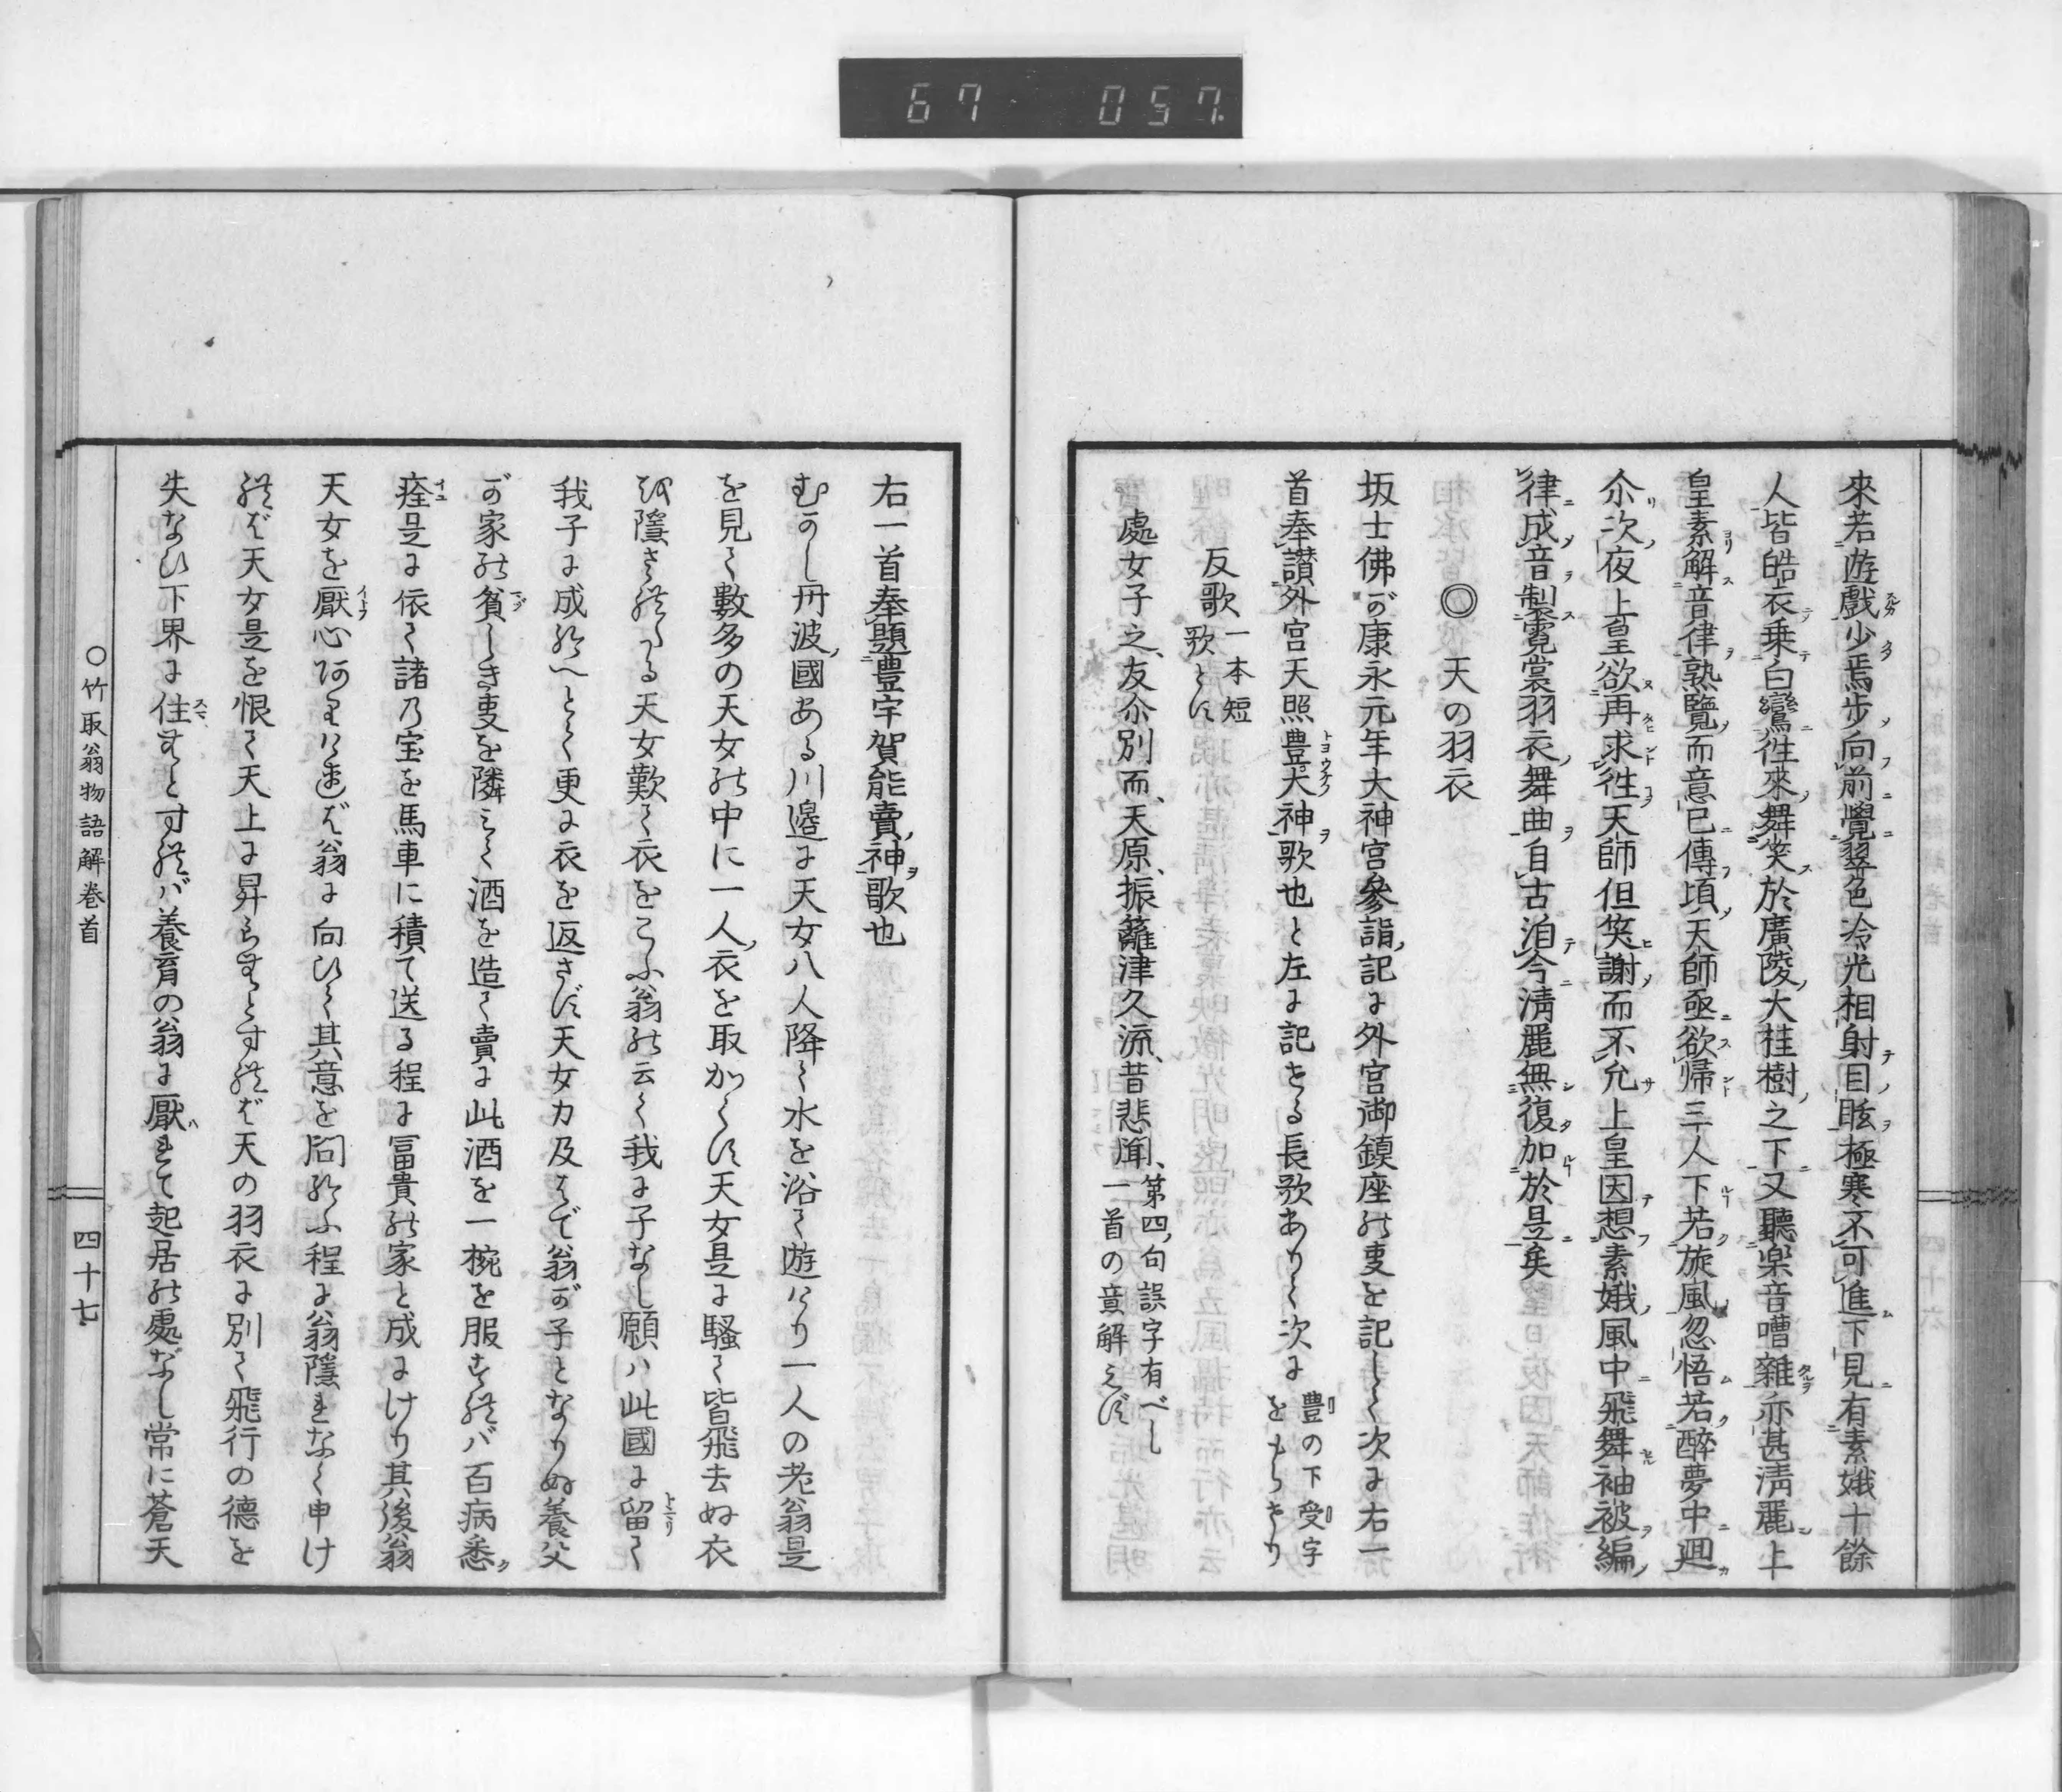 67 057
來若遊戲少焉步向前覺翠色冷光相射目眩極寒不可進下見有素娥十餘
人皆皓衣乗白鸞徃來舞笑於廣陵大桂樹之下又聽楽音嘈雜亦甚淸麗上
皇素解音律熟覽而意已傳頃天師亟欲帰三人下若旋風忽悟若醉夢中迴
尒次夜上皇欲再求徃天師但笑謝而不允上皇因想素娥風中飛舞袖被編
律成音製霓裳羽衣舞曲自古洎今淸麗無復加於是矣
◎ 天の羽衣
坂士佛が康永元年大神宮參詣記に外宮御鎮座の叓を記して次に右一
首奉讃外宮天照豊大神歌也と左に記せる長歌ありて次に豊の下受字をもらせり
反歌一本短歌とす
處女子之、友尒別而、天原、振籬津久流、昔悲聞、第四句誤字有べし一首の意解えず
右一首奉題豊宇賀能賣神歌也
むかし丹波國ある川邉に天女八人降て水を浴て遊けり一人の老翁是
を見て數多の天女の中に一人衣を取かくす天女是に騒て皆飛去ぬ衣
を隱されたる天女歎て衣をこふ翁の云く我に子なし願ハ此國に留て
我子に成給へとて更に衣を返さず天女力及はで翁が子となりぬ養父
が家の貧しき叓を隣みて酒を造て賣に此酒を一椀を服すれバ百病悉
痊是に依て諸乃宝を馬車に積て送る程に冨貴の家と成にけり其後翁
天女を厭心何りければ翁に向ひて其意を問給ふ程に翁隱れなく申け
れば天女是を恨て天上に昇らむとすれば天の羽衣に別て飛行の德を
失なひ下界に住むとすれバ養育の翁に厭れて起居の處なし常に蒼天
○竹取翁物語解卷首
四十七